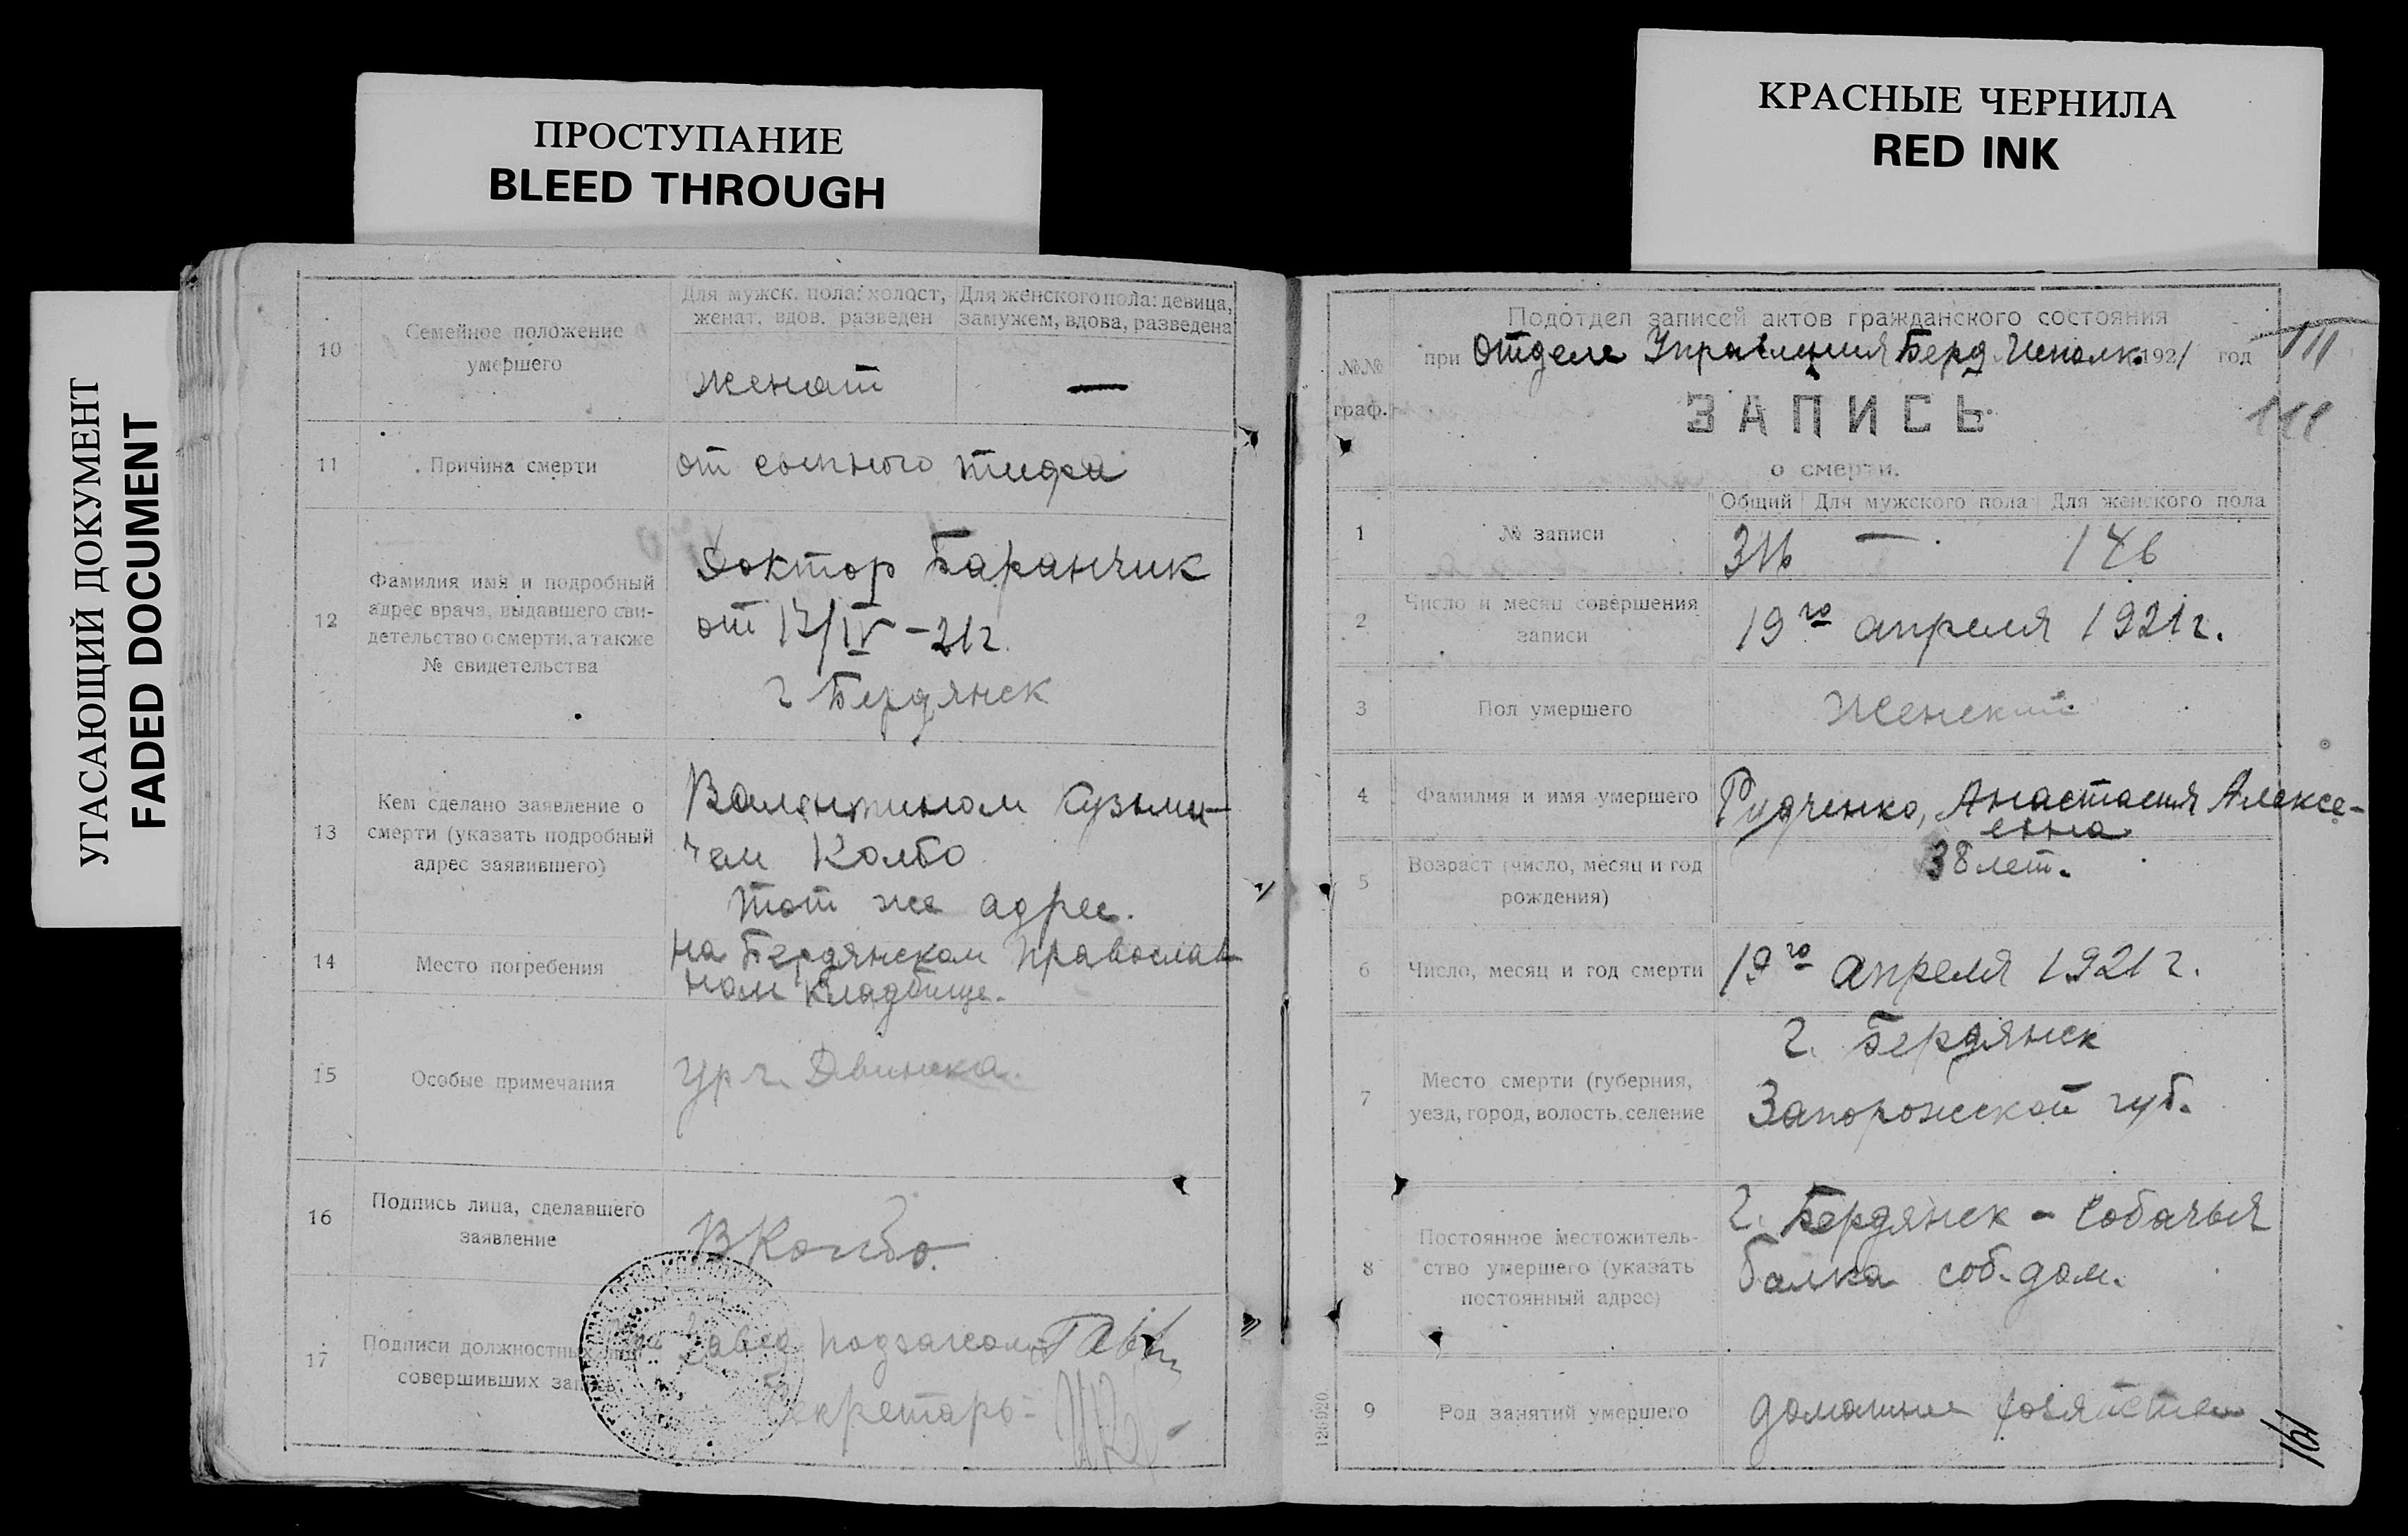 ПРОСТУПАНИЕ
BLEED THROUGH
КРАСНЫЕ ЧЕРНИЛА
RED INK
УГАСАЮЩИЙ ДОКУМЕНТ
FADED DOCUMENT
10
Семейное положение
умершего
Для мужск. пола: холост,
женат, вдов, разведен
Для женского пола: девица,
замужем, вдова, разведена
женат
—
11
Причина смерти
от сыпного тифа
12
Фамилия имя и подробный
адрес врача, выдавшего сви-
детельство о смерти, а также
№ свидетельства
Доктор Баранчик
от 17/IV - 21 г.
г Бердянск
13
Кем сделано заявление о
смерти (указать подробный
адрес заявившего)
Валентином Кузьми-
чем Колбо
тот же адрес.
14
Место погребения
на Бердянском православ
ном кладбище.
15
Особые примечания
ур г. Двинска.
16
Подпись лица, сделавшего
заявление
ВКолбо.
17
Подписи должностных лиц
совершивших запись
Завед. подзагсом
Секретарь-
№№
граф.
Подотдел записей актов гражданского состояния
при Отделе Управления Берд. Исполк. 1921 год
111
111
ЗАПИСЬ
о смерти.
Общий
Для мужского пола
Для женского пола
1
№ записи
316 — 146
2
Число и месяц совершения
записи
19го апреля 1921 г.
3
Пол умершего
Женский
4
Фамилия и имя умершего
Рудченко, Анастасия Алексе-
евна
5
Возраст (число, месяц и год
рождения)
38 лет.
6
Число, месяц и год смерти
19го апреля 1921 г.
7
Место смерти (губерния,
уезд, город, волость, селение
г. Бердянск
Запорожской губ.
8
Постоянное местожитель-
ство умершего (указать
постоянный адрес)
г. Бердянск - Собачья
балка соб. дом.
9
Род занятий умершего
домашнее хозяйство